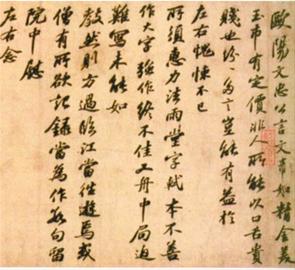 歐陽文忠公言文章如精金美
玉市有定價非人所能以口舌貴
賤也紛〻多言豈能有益於
左右愧悚不已
所須惠力法雨堂字軾本不善
作大字強作終不佳又舟中局迫
難寫未能如
教然則方過臨江當往遊焉或
僧有所欲記錄當為作數句留
院中慰
左右念